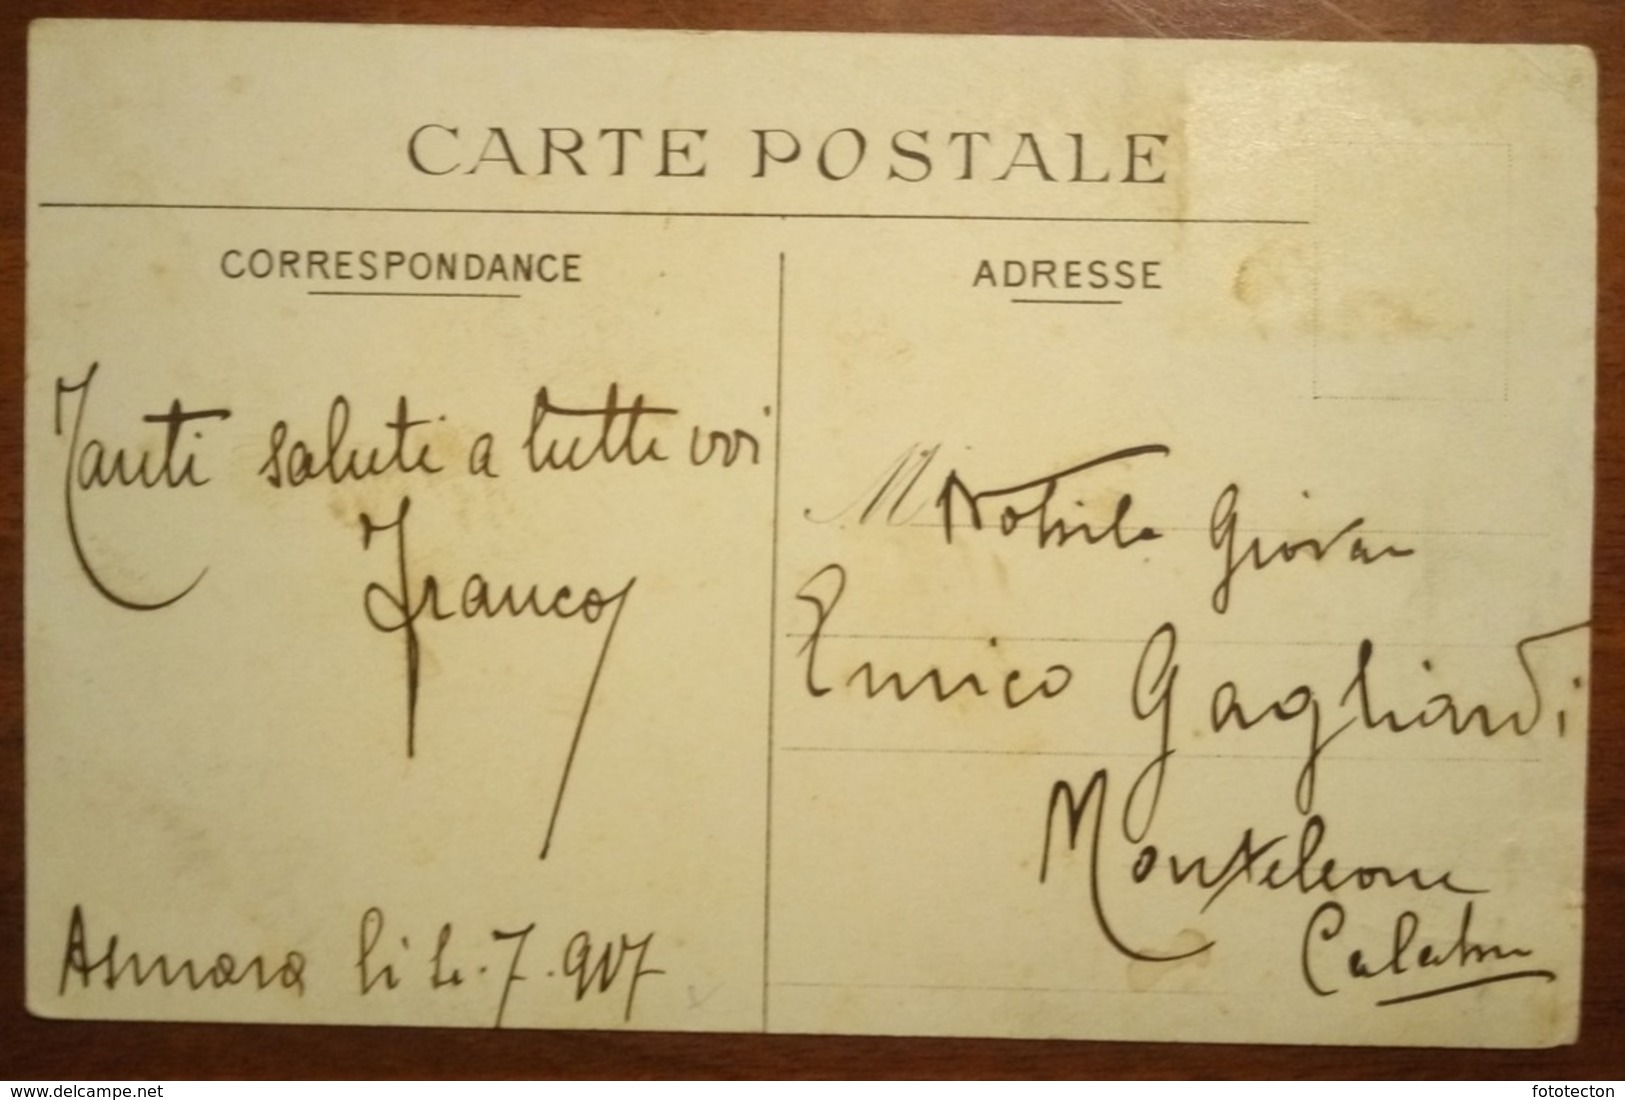 CARTE POSTALE
CORRESPONDANCE
Tanti saluti a tutti voi
Franco
Asmara li 7.907
ADRESSE
M Nobile Giovan
Enrico Gagliardi
Monteleone
Calabro
www.delcampe.net
fototecton